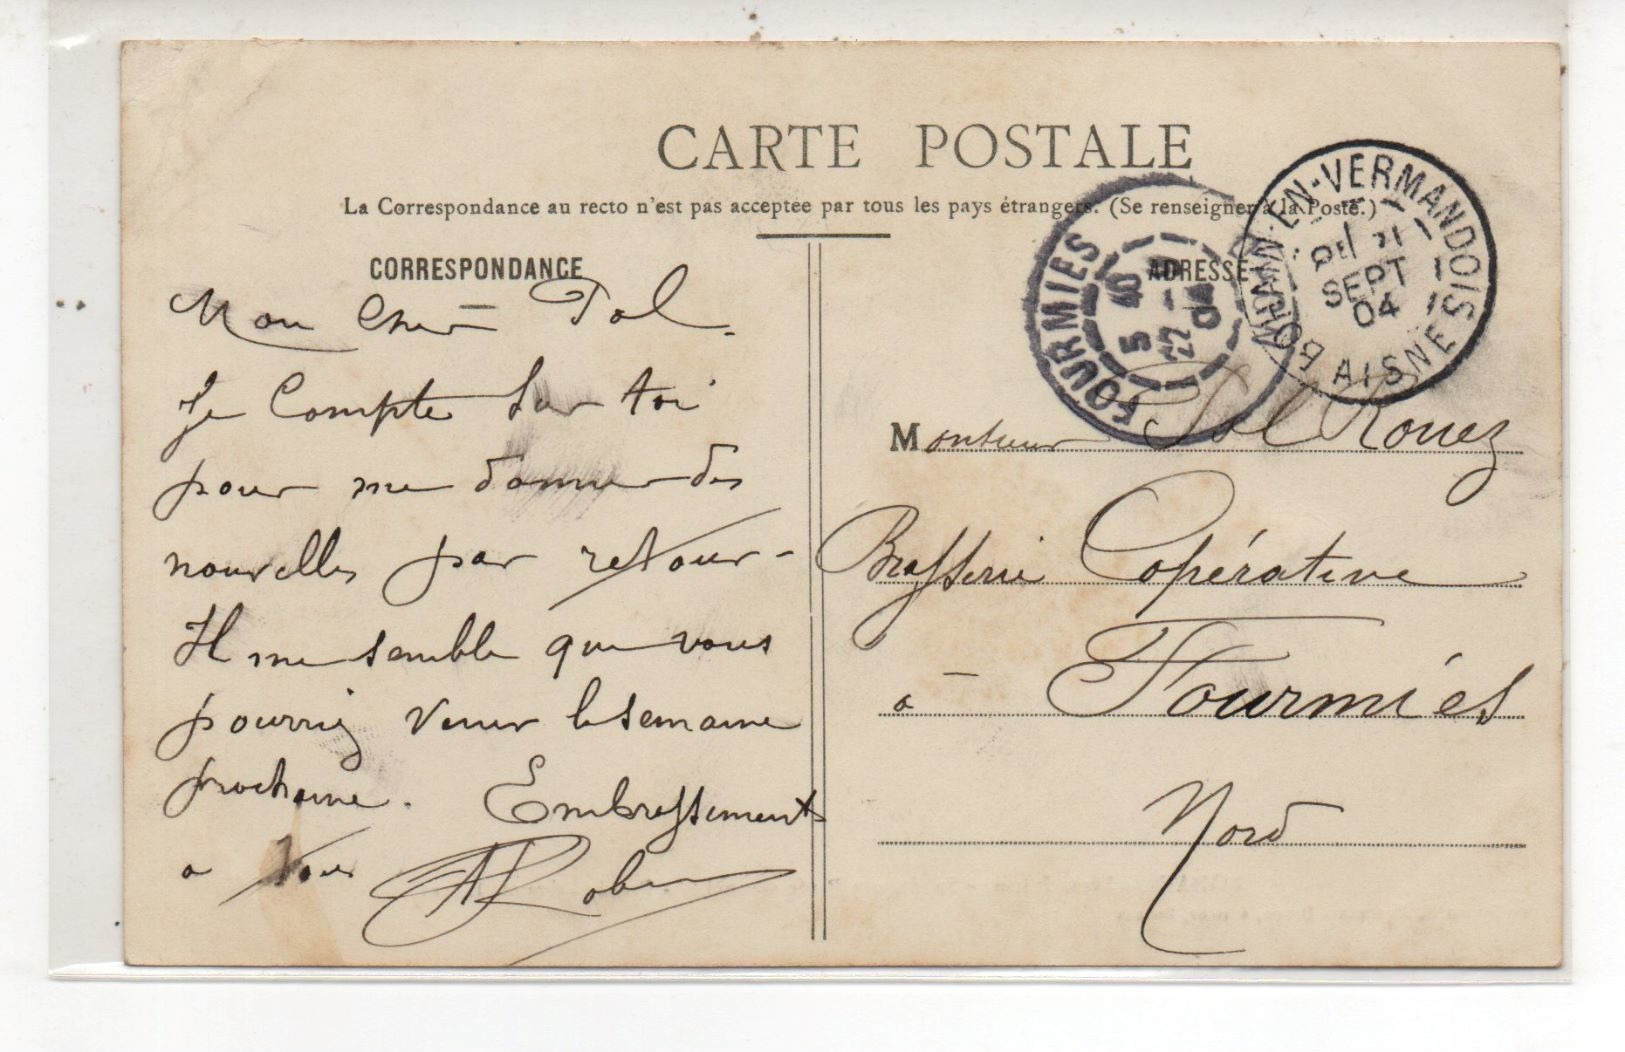 CARTE POSTALE
La Correspondance au recto n'est pas acceptée par tous les pays étrangers. (Se renseigner à la Poste.)
CORRESPONDANCE
Mon Cher Pol.
Je Compte sur toi
pour me donner des
nouvelles par retour -
Il me semble que vous
pourriez venir la semaine
prochaine. Embrassements
a tous
ADRESSE
Monsieur Pol Rouez
Brasserie Copérative
à Fourmiés
Nord
FOURMIES
5 40
22 - 9
04
BOHAIN-EN-VERMANDOIS
21
SEPT
04
AISNE